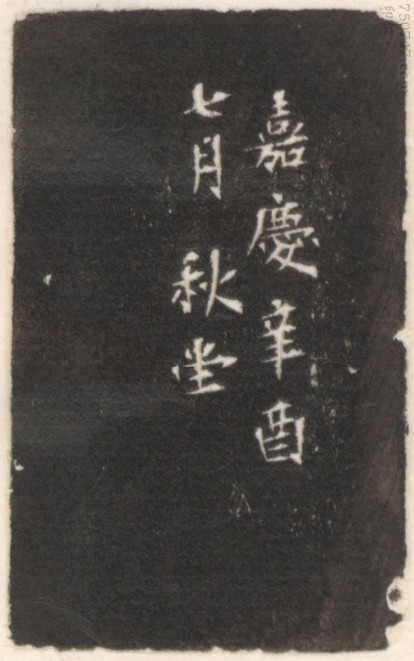 嘉慶辛酉
七月秋堂